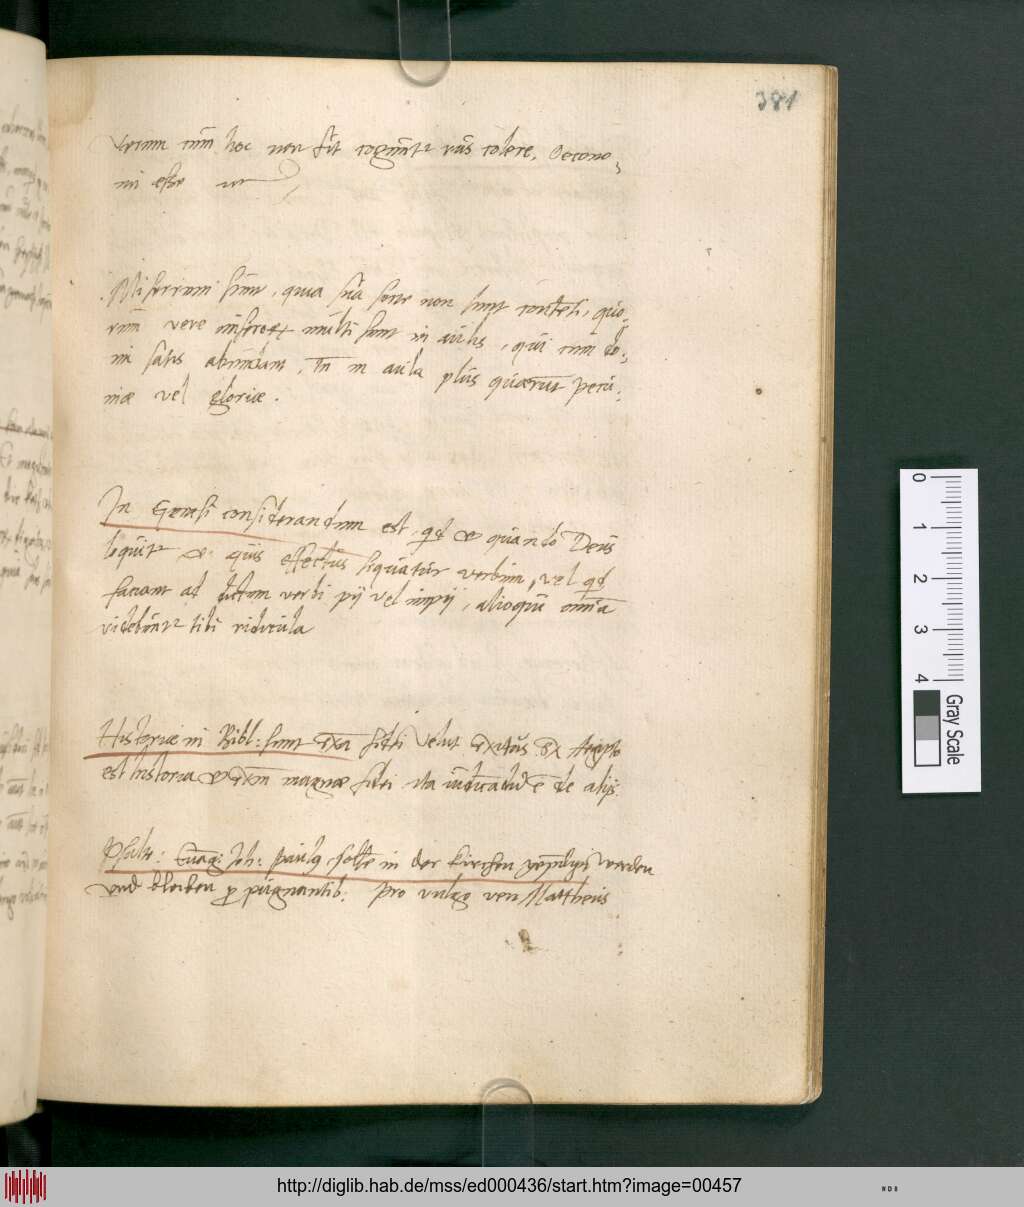 381
Verum cum hoc non sit cogunt rus colere, Oecono,
mi esse
Miserrimi sunt, quia sua sorte non sunt contenti, quo,
rum vere multi sunt in aulis, qui cum do,
mi satis abundant, tn in aula plus quaerunt pecu,
niae vel gloriae.
In Genesi considerandum est, qd et quando Deus
loquitr et quis effectus sequatur verbum, vel qd
faciant ad dictum verbi pij vel impij, alioqui omnia
videbuntr tibi ridicula
Historiae in Bibl: sunt exa fidei velut exitus ex Aegypto
est historia et exm magnae fidei ita iudicadu e de alijs.
Psalt: Euāg: Joh: Paulus solte in der kirchen werden
und bleiben p pugnantib: Pro vulgo ven Mattheus
0
1
2
3
4
Gray Scale
http://diglib.hab.de/mss/ed000436/start.htm?image=00457